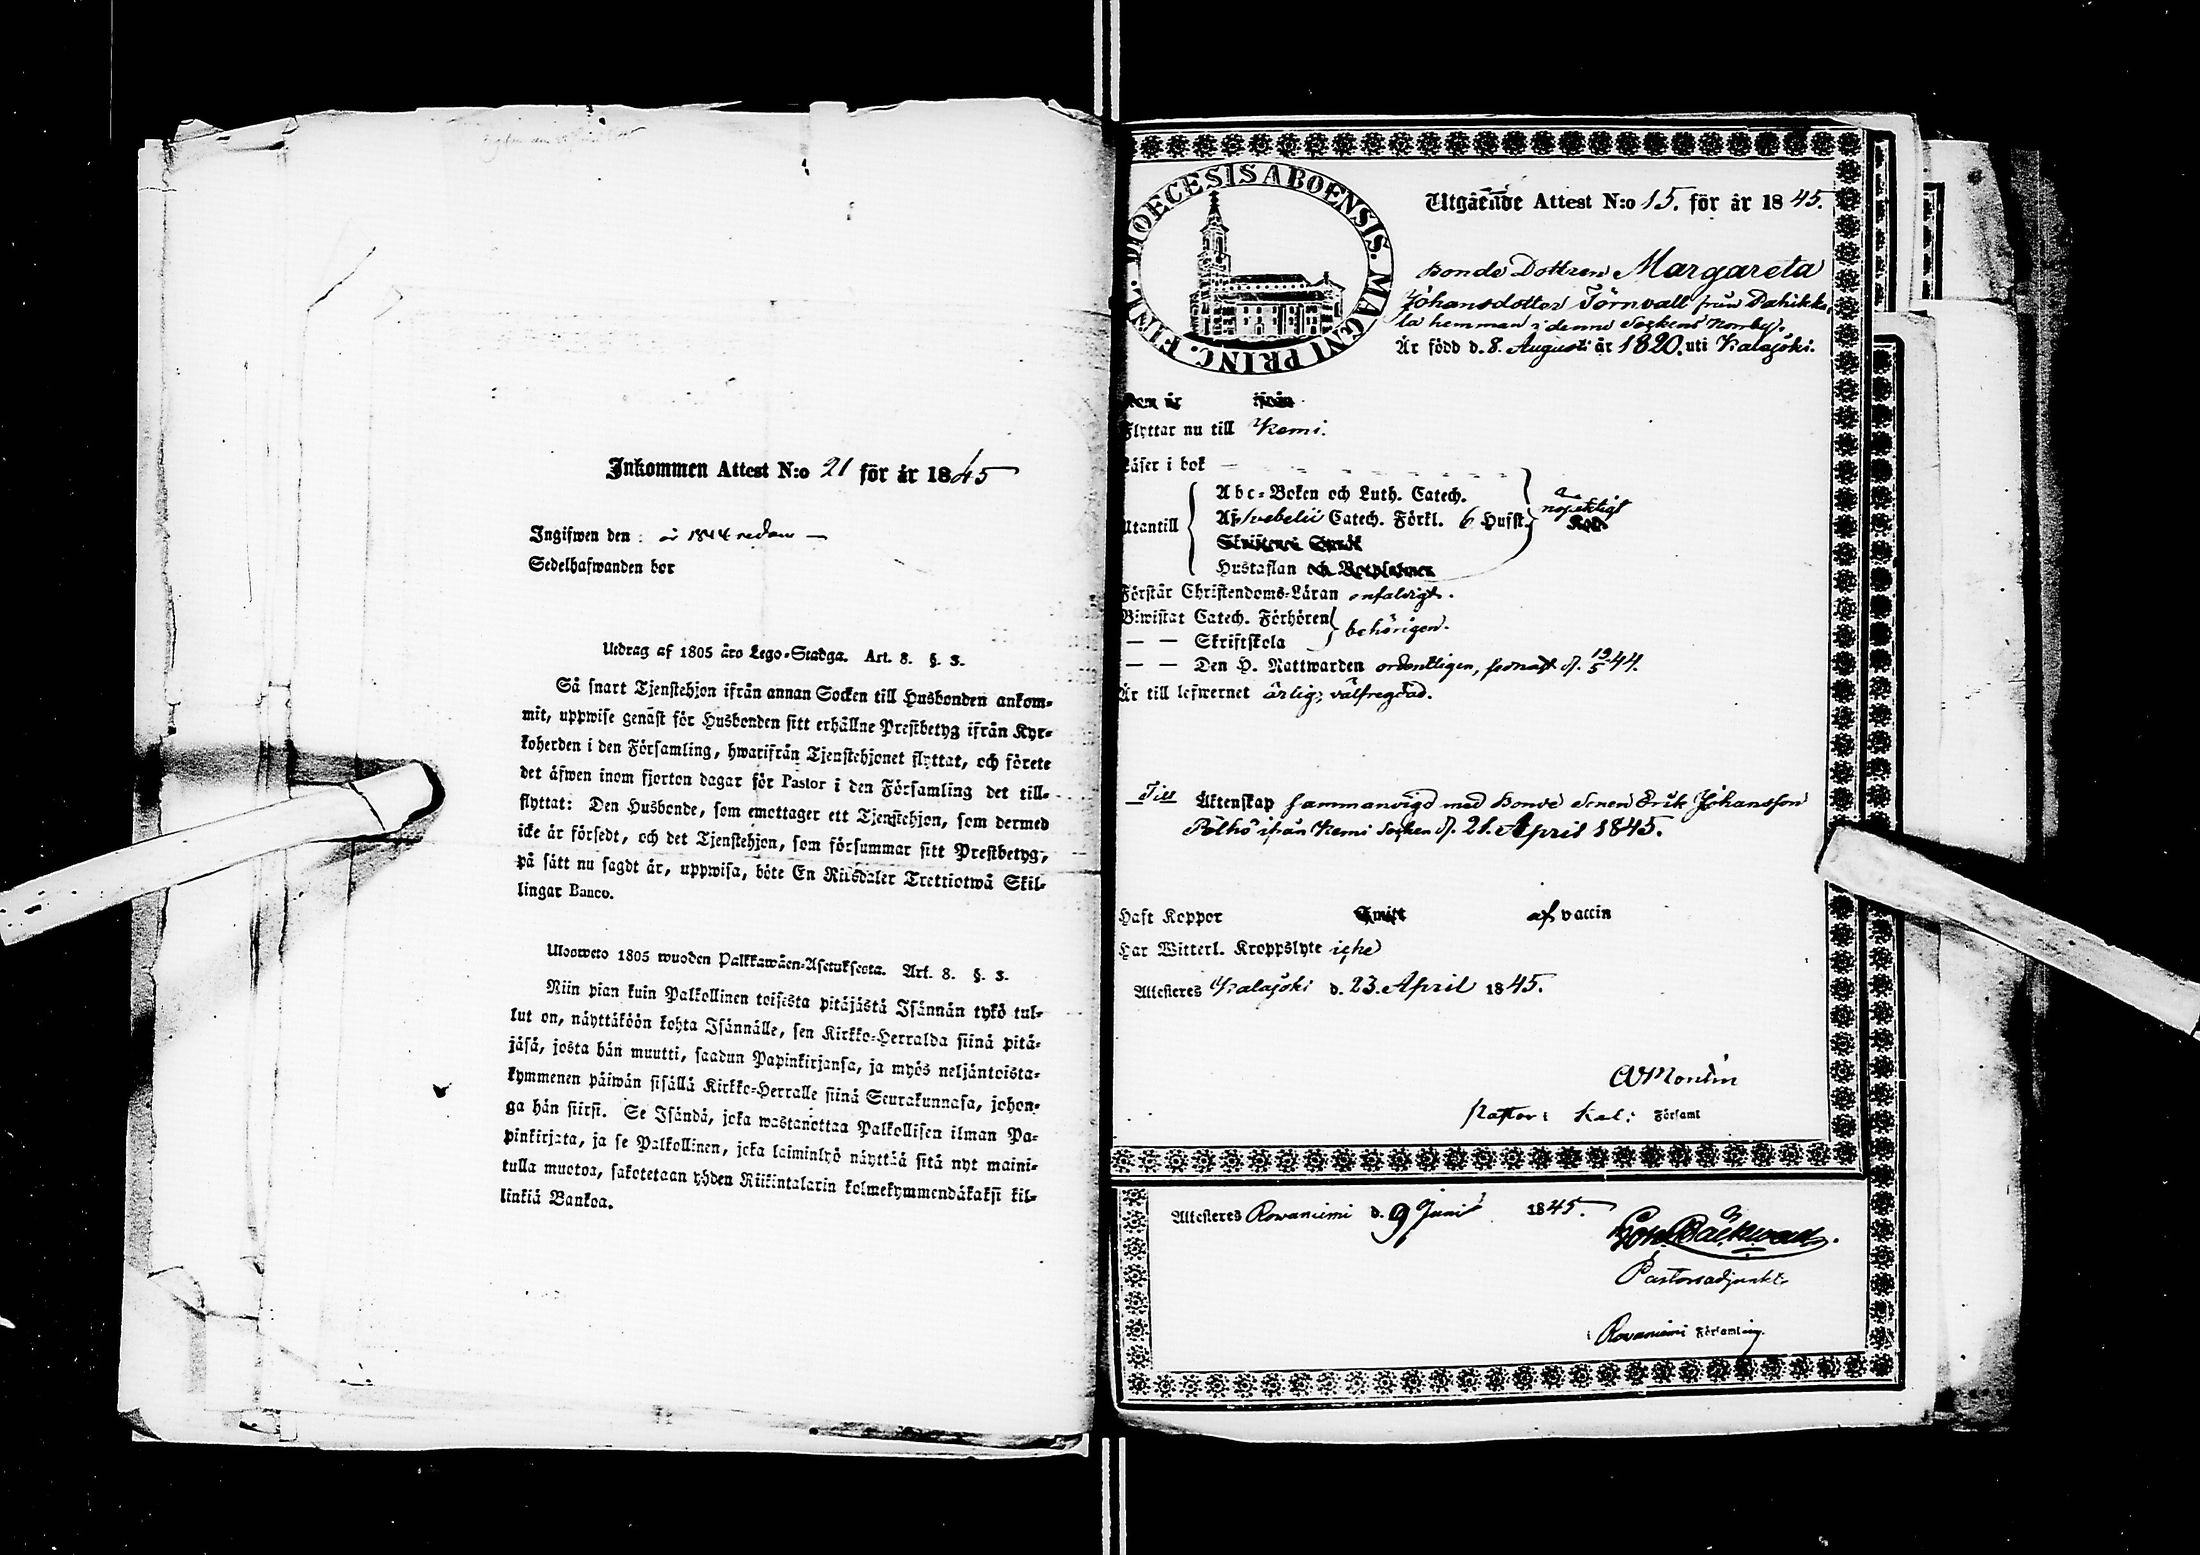 Inkommen Attest N:o 21 för år 1845
Ingifwen den: år 1844 redan —
Sedelhafwanden bor
Utdrag af 1805 års Lego-Stadga. Art. 8. §. 3.
Så snart Tjenstehjon ifrån annan Socken till Husbonden ankom-
mit, uppwise genast för Husbonden sitt erhållne Prestbetyg ifrån Kyr-
koherden i den Församling, hwarifrån Tjenstehjonet flyttat, och förete
det äfwen inom fjorton dagar för Pastor i den Församling det till-
flyttat: Den Husbonde, som emottager ett Tjenstehjon, som dermed
icke är försedt, och det Tjenstehjon, som försummar sitt Prestbetyg,
på sätt nu sagdt är, uppwisa, böte En Riksdaler Trettiotwå Skil-
lingar Banco.
Ulosweto 1805 wuoden Palkkawäen-Asetuksesta. Art. 8. §. 3.
Niin pian kuin Palkollinen toisesta pitäjästä Isännän tykö tul-
lut on, näyttäköön kohta Isännälle, sen Kirkko-Herralda siinä pitä-
jäsä, josta hän muutti, saadun Papinkirjansa, ja myös neljäntoista-
kymmenen päiwän sisällä Kirkko-Herralle siinä Seurakunnasa, johon-
ga hän siirsi. Se Isändä, joka wastanottaa Palkollisen ilman Pa-
pinkirjata, ja se Palkollinen, joka laiminlyö näyttää sitä nyt maini-
tulla muotoa, sakotetaan yhden Riikintalarin kolmekymmendäkaksi kil-
linkiä Bankoa.
DIOECESIS ABOENSIS. MAGNI PRINC. FINL.
Utgående Attest N:o 15. för år 1845.
Bonde Dottren Margareta
Johansdotter Törnvall från Dahikka-
la hemman i denne Sockens Kornby.
Är född d. 8. Augusti år 1820. uti Kalajoki.
Flyttar nu till Kemi.
Läser i bok —
Utantill
Abc-Boken och Luth. Catech.
Svebelii Catech. Förkl. 6 Hufst.
nöjaktigt
Hustaflan
Förstår Christendoms-Läran enfaldigt.
Biwistat Catech. Förhören
— — Skriftskola
behörigen.
— — Den H. Nattwarden ordentligen, sednast d. 19/5 44.
Är till lefwernet ärlig, välfregdad.
Till Äktenskap sammanvigd med Bonde Sonen Erik Johansson
Pölhö ifrån Kemi Socken d. 21. April 1845.
Haft Koppor af vaccin
Har Witterl. Kroppslyte icke
Attesteres Kalajoki d. 23. April 1845.
Pastor i Kal: Församl
Attesteres Rowaniemi d. 9 Juni 1845.
Joh. Bäckman.
Pastorsadjunkt
i Rovaniemi Församling.